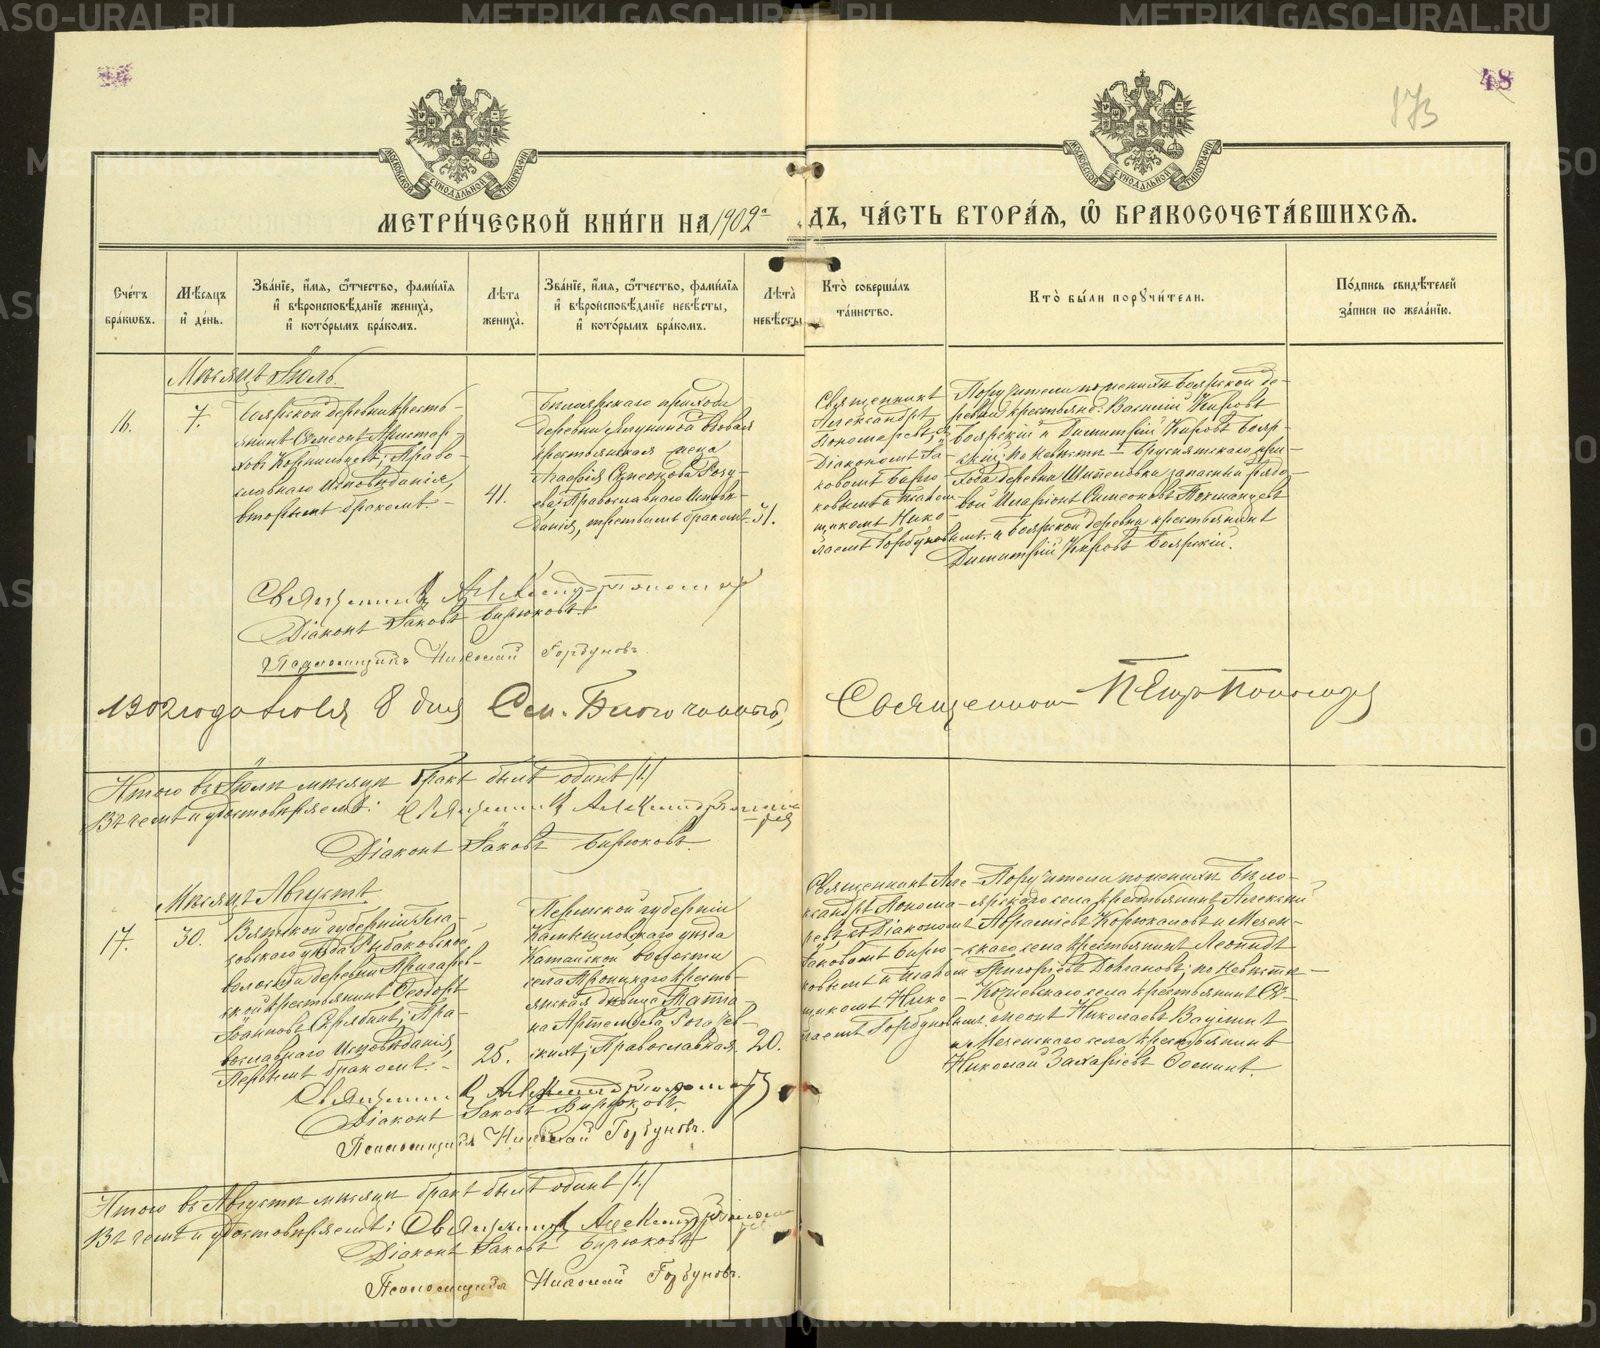 48
173
МОСКОВСКОЙ СѴНОДАЛЬНОЙ ТИПОГРАФІИ
МОСКОВСКОЙ СѴНОДАЛЬНОЙ ТИПОГРАФІИ
МЕТРИ́ЧЕСКОЙ КНИ́ГИ НА 1902 ДЪ, ЧА́СТЬ ВТОРА́Я, Ѽ БРАКОСОЧЕТА́ВШИХСЯ.
Сче́тъ бра́кѡвъ.
Мѣ́сяцъ и҆ де́нь.
Зва́нїе, и҆́мя, ѻ҆́тчество, фами́лїя и҆ вѣроисповѣ́данїе жениха̀, и҆ кото́рымъ бра́комъ.
Лѣ́та жениха̀.
Зва́нїе, и҆́мя, ѻ҆́тчество, фами́лїя и҆ вѣроисповѣ́данїе невѣ́сты, и҆ кото́рымъ бра́комъ.
Лѣ́та невѣ́сты
Кто̀ соверша́лъ та́инство.
Кто̀ бы́ли порꙋчи́тели.
По́дпись свидѣ́телей за́писи по жела́нїю.
Мѣсяцъ Іюль.
16.
7.
Боярской деревни кресть-
янинъ Сѵмеонъ Аристар-
ховъ Корнильцевъ, Право-
славнаго Исповѣданія,
вторымъ бракомъ.
41.
Бѣлоярскаго прихода
деревни вдовая
крестьянская жена
Агафія Сѵмеонова
Православнаго Исповѣ-
данія, третьимъ бракомъ
31.
Священникъ
Александръ
Пономаревъ, съ
Діакономъ Іа-
ковомъ Бирю-
ковымъ и псалом-
щикомъ Нико-
лаемъ Горбуновымъ.
Поручители по женихѣ Боярской де-
ревни крестьяне: Василій Кировъ
Боярскій и Димитрій Кировъ Бояр-
скій; по невѣстѣ Бруснятскаго при-
хода деревни Шипеловки запасный рядо-
вой Иларіонъ Симеоновъ Токманцевъ
и Боярской деревни крестьянинъ
Димитрій Кировъ Боярскій.
Священникъ Александръ Пономарев
Діаконъ Іаковъ Бирюковъ.
Псаломщикъ Николай Горбуновъ.
1902 года Іюля 8 дня См. Благочинный, Священник Петр Пономарев
Итого въ Іюлѣ мѣсяцѣ бракъ былъ одинъ /1/
Въ чемъ и удостовѣряемъ: Священникъ Александръ Понома-
рев
Діаконъ Іаковъ Бирюковъ.
Мѣсяцъ Августъ
17.
30.
Вятской губерніи Гла-
зовскаго уѣзда Рыбаковской
волости деревни
ской крестьянинъ Ѳеодоръ
Іоанновъ Скрябинъ, Пра-
вославнаго Исповѣданія,
Первымъ бракомъ.
25.
Пермской губерніи
Камышловскаго уѣзда
Катайской волости
села Троицкаго кресть-
янская дѣвица Татіа-
на Артемьева Рогачев-
скихъ, Православная.
20.
Священникъ Але-
ксандръ Понома-
ревъ съ Діакономъ
Іаковомъ Бирю-
ковымъ и псалом-
щикомъ Нико-
лаемъ Горбуновымъ.
Поручители по женихѣ Бѣло-
ярскаго села крестьянинъ Алексѣй
Авраміевъ Корюкаловъ и Мезен-
скаго села крестьянинъ Леонидъ
Григоріевъ Долгановъ; по невѣстѣ
Кочневскаго села крестьянинъ Сѵ-
меонъ Николаевъ
и Мезенскаго села крестьянинъ
Николай Захаріевъ Ѳоминъ.
Священникъ Александръ Пономарев
Діаконъ Іаковъ Бирюковъ.
Псаломщикъ Николай Горбуновъ.
Итого въ Августѣ мѣсяцѣ бракъ былъ одинъ /1/
Въ чемъ и удостовѣряемъ: Священникъ Александръ Понома-
рев
Діаконъ Іаковъ Бирюковъ
Псаломщикъ Николай Горбуновъ.
METRIKI.GASO-URAL.RU